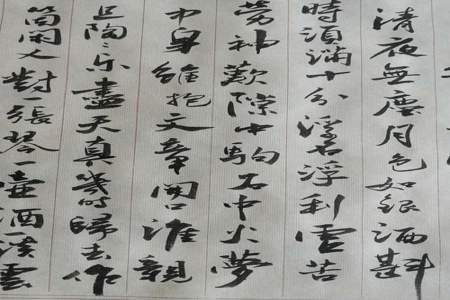 清夜無塵月色如銀酒斟
時須滿十分浮名浮利虛苦
勞神歎隙中駒石中火夢
中身雖抱文章開口誰親
且陶〻樂盡天真幾時歸去作
箇閑人對一張琴一壺酒溪雲